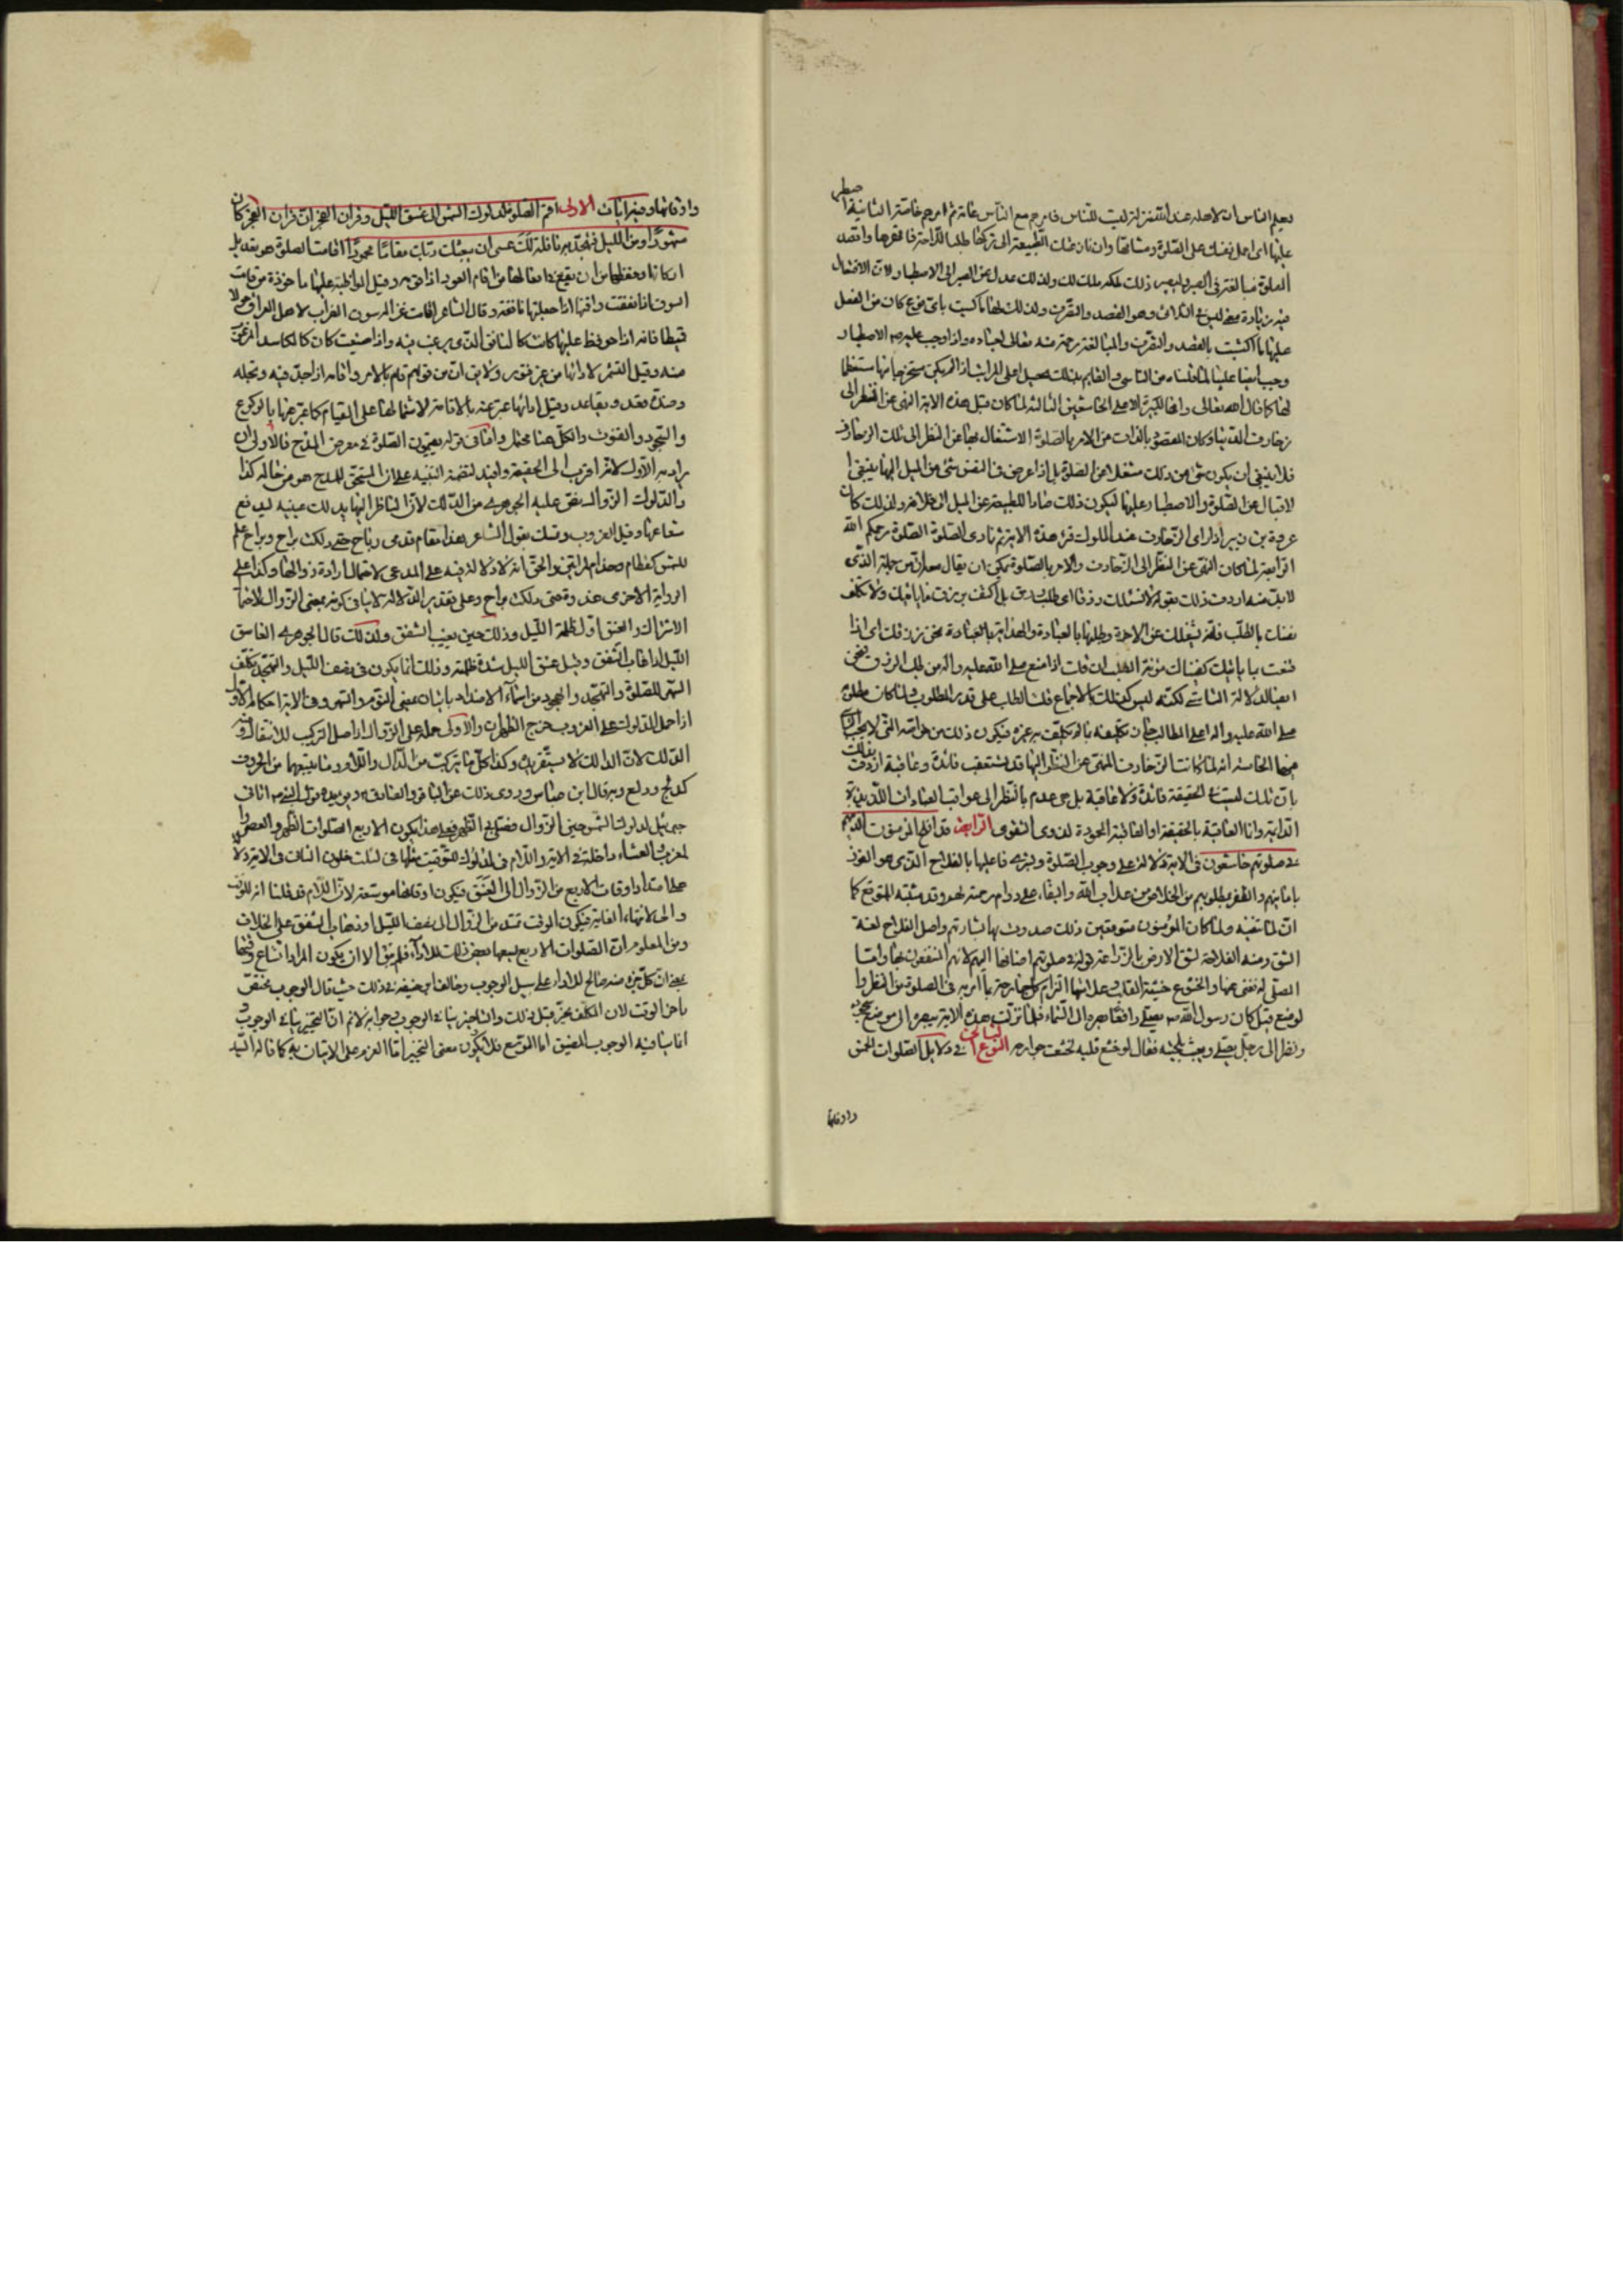 يعلم الناس ان لاهله عند الله منزلة ليست للناس فامرهم مع الناس عامة ثم امرهم خاصة الثانية اصطبر
عليها اى احمل نفسك على الصلوة ومشاقها وان نازعتك الطبيعة الى تركها طلبا للراحة فاقهرها واقصد
الصلوة مبالغة فى الصبر ليصير ذلك ملكة لك ولذلك عدل عن الصبر الى الاصطبار لان الافتعال
فيه زيادة معنى ليس فى الثلاثى وهو القصد والتصرف ولذلك لها ما كسبت باى نوع كان من الفعل
عليها ما اكتسبت بالقصد والتصرف والمبالغة رحمة منه تعالى لعباده واذا وجب عليه الاصطبار
وجب ايضا علينا
لها كما قال الله تعالى وانها لكبيرة الا على الخاشعين الثالثة لما كان قبل هذه الاية النهى عن النظر الى
زخارف الدنيا وكان المقصود بالذات من الامر بالصلوة الاشتغال بها عن النظر الى تلك الزخارف
فلا ينبغى ان يكون شئ من ذلك مشغلا عن الصلوة بل اذا عرض فى النفس شئ من الميل اليها ينبغى
الاقبال على الصلوة والاصطبار عليها ليكون ذلك صادا للطبيعة عن الميل الى خلافه ولذلك كان
عروة بن زبير اذا راى الزخارف عند الملوك قرء هذه الاية ثم نادى الصلوة الصلوة رحمكم الله
الرابعة لما كان النهى عن النظر الى الزخارف والامر بالصلوة يمكن ان يقال معه ان من جملة الذى
لا بد منه اردف ذلك بقوله لا نسئلك رزقا اى طلب رزق بل اكتف برزقنا ياتيك ولا تكلف
نفسك بالطلب فانه يشغلك عن الاخرة وطلبها بالعبادة والهداية بالعبادة نحن نرزقك اى اذا
قنعت بما ياتيك كفيناك مؤنة الطلب ان قلت اذا منع صلى الله عليه واله من طلب الرزق فنحن
ايضا لدلالة التاسى لكنه ليس كذلك بالاجماع قلت الطلب على قدر المطلوب ولما كان مطلوبه
صلى الله عليه واله اعلى المطالب جاز تكليفه بما لم يكلف به غيره فيكون ذلك من خواصه التى لا يجب التاسى
فيها الخامسة انه لما كانت الزخارف المنهى عن النظر اليها قد يستعقب فائدة وعاقبة اردف ذلك
بان تلك ليست فى الحقيقة فائدة ولا عاقبة بل هى عدم بالنظر الى عواقب العبادات اللذيذة
الدائمة وانما العاقبة بالحقيقة او العاقبة المحمودة لذوى التقوى الرابعة قد افلح المؤمنون الذين هم
فى صلوتهم خاشعون فى الاية دلالة على وجوب الصلوة وبشره فاعليها بالفلاح الذى هو الفوز
بامانيهم والظفر بمطلوبهم من الخلاص من عذاب الله والبقاء على دوام رحمته لهم وقد مثبته للمتوقع كما
ان لما تنفيه ولما كان المؤمنون متوقعين ذلك صدرت بها بشارتهم واصل الفلاح لغة
الشق ومنه الفلاحة لشق الارض بالزراعة قوله فى صلوتهم اضافها اليهم لانهم المنتفعون بها واما
المصلى له فغنى عنها والخشوع خشية القلب وعلامتها التزام كل جارحة بما امر به فى الصلوة من النظر
لموضع قيل كان رسول الله ص يصلى رافعا بصره الى السماء فلما نزلت هذه الاية رمى ببصره الى موضع سجوده
ونظر الى رجل يصلى ويعبث بلحيته فقال لو خشع قلبه لخشعت جوارحه النوع الثانى فى دلايل الصلوات الخمس
واوقاتها
واوقاتها وفيه ايات الاولى اقم الصلوة لدلوك الشمس الى غسق الليل وقران الفجر ان قران الفجر كان
مشهودا ومن الليل فتهجد به نافلة لك عسى ان يبعثك ربك مقاما محمودا اقامة الصلوة هو تعديل
اركانها وحفظها من ان يقع زيغ فى افعالها من اقام العود اذا قومه وقيل المواظبة عليها ماخوذة من قامت
السوق اذا نفقت واقمتها اذا جعلتها نافقة وقال الشاعر اقامت غزالة سوق الضراب لاهل العراقين حولا
قميطا فانه اذا حوفظ عليها كانت كالنافق الذى يرغب فيه واذا ضيعت كان كالكاسد المرغوب
عنه وقيل التشمر لادائها من غير فتور ولا توان من قولهم قام بالامر واقامه اذا جد فيه وتجلد
وضده قعد وتقاعد وقيل ادائها عبر عنه بالاقامة لاشتمالها على القيام كما عبر عنها بالركوع
والسجود والقنوت والكل هنا محتمل واما فى قوله يقيمون الصلوة فى معرض المدح فالاولى ان
يراد به الاول لانه اقرب الى الحقيقة وافيد لتضمنه التنبيه على ان المستحق للمدح هو من حاله كذا
والدلوك الزوال نص عليه الجوهرى من الدلك لان الناظر اليها يدلك عينيه ليدفع
شعاعها وقيل الغروب وتمسك بقول الشاعر هذا مقام قدمى رباح حتى دلكت براح وبراح علم
للشمس كقطام وحذام والحق انه لا دلالة فيه على المدعى لاحتمال ارادة زوالها وكذا على
الرواية الاخرى غدوة حتى دلكت براح وعلى تقدير الدلالة لا ينافى كونه بمعنى الزوال لاحتمال
الاشتراك والغسق اول ظلمة الليل وذلك حين يغيب الشفق ولذلك قال الجوهرى الغاسق
الليل اذا غاب الشفق وقيل غسق الليل شدة ظلمته وذلك انما يكون فى نصف الليل والتهجد تكلف
السهر للصلوة والتهجد والهجود من اسماء الاضداد ياتيان بمعنى النوم والسهر وفى الاية احكام الاول
اذا حمل الدلوك على الغروب خرج الظهران والاولى حمله على الزوال اذ اصل التركيب للانتقال ومنه
الدلك لان الدالك لا يستقر يده وكذا كل ما يتركب من الدال واللام وما يتبعهما من الحروف
كدلج ودلع وبه قال ابن عباس وروى ذلك عن الباقر والصادق ويؤيده قول النبى ص اتانى
جبرئيل لدلوك الشمس حين الزوال فصلى بى الظهر فعلى هذا يكون الاربع الصلوات الظهر والعصر
والمغرب والعشاء داخلة فى الاية واللام فى لدلوك للتوقيت مثلها فى لثلاث خلون الثانى فى الاية دلالة
على امتداد اوقات الاربع من الزوال الى الغسق فيكون اوقاتها موسعة لان اللام قد قلنا انه للتوقيت
والى لانتهاء الغاية فيكون الوقت ممتد من الزوال الى نصف الليل او ذهاب الشفق على الخلاف
ومن المعلوم ان الصلوات الاربع لا يسعها بعض ذلك للاداء فلم يبق الا ان يكون المراد اتساع وقتها
بمعنى ان كل جزء منه صالح للاداء على سبيل الوجوب وخالف ابو حنيفة فى ذلك حيث قال الوجوب يختص
باخر الوقت لان المكلف مخير قبل ذلك والتخيير ينافى الوجوب وجوابه لا نم ان التخيير ينافى الوجوب و
انما ينافيه الوجوب المضيق اما الموسع فلا يكون معنى التخيير اما العزم على الاتيان به كما قاله السيد